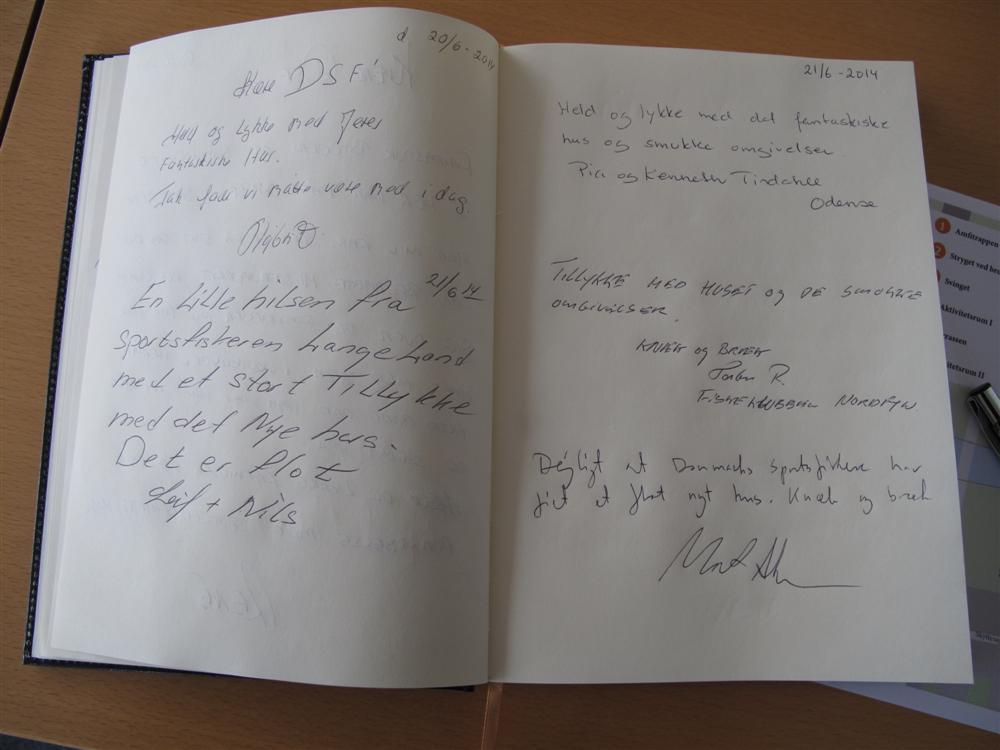 d 20/6-2014
Kære DSF
Held og lykke med Jeres
Fantastiske Hus.
Tak fordi vi måtte være med i dag.
21/6 14
En Lille hilsen fra
sportsfiskeren Langeland
med et stort TILLykke
med det Nye hus.
Det er flot
Leif + Nils
21/6-2014
Held og lykke med det fantastiske
hus og smukke omgivelser
Pia og Kenneth
Odense
TILLYKKE MED HUSET og DE SMUKKE
OMGIVELSER.
KNÆK og BRÆK
R.
FISKEKLUBBEN NORDFYN.
Dejligt at Danmarks Sportsfiskere har
fået et flot nyt hus. Knæk og bræk
1 Amfitrappen
2 Stryget ved
Svinget
Aktivitetsrum I